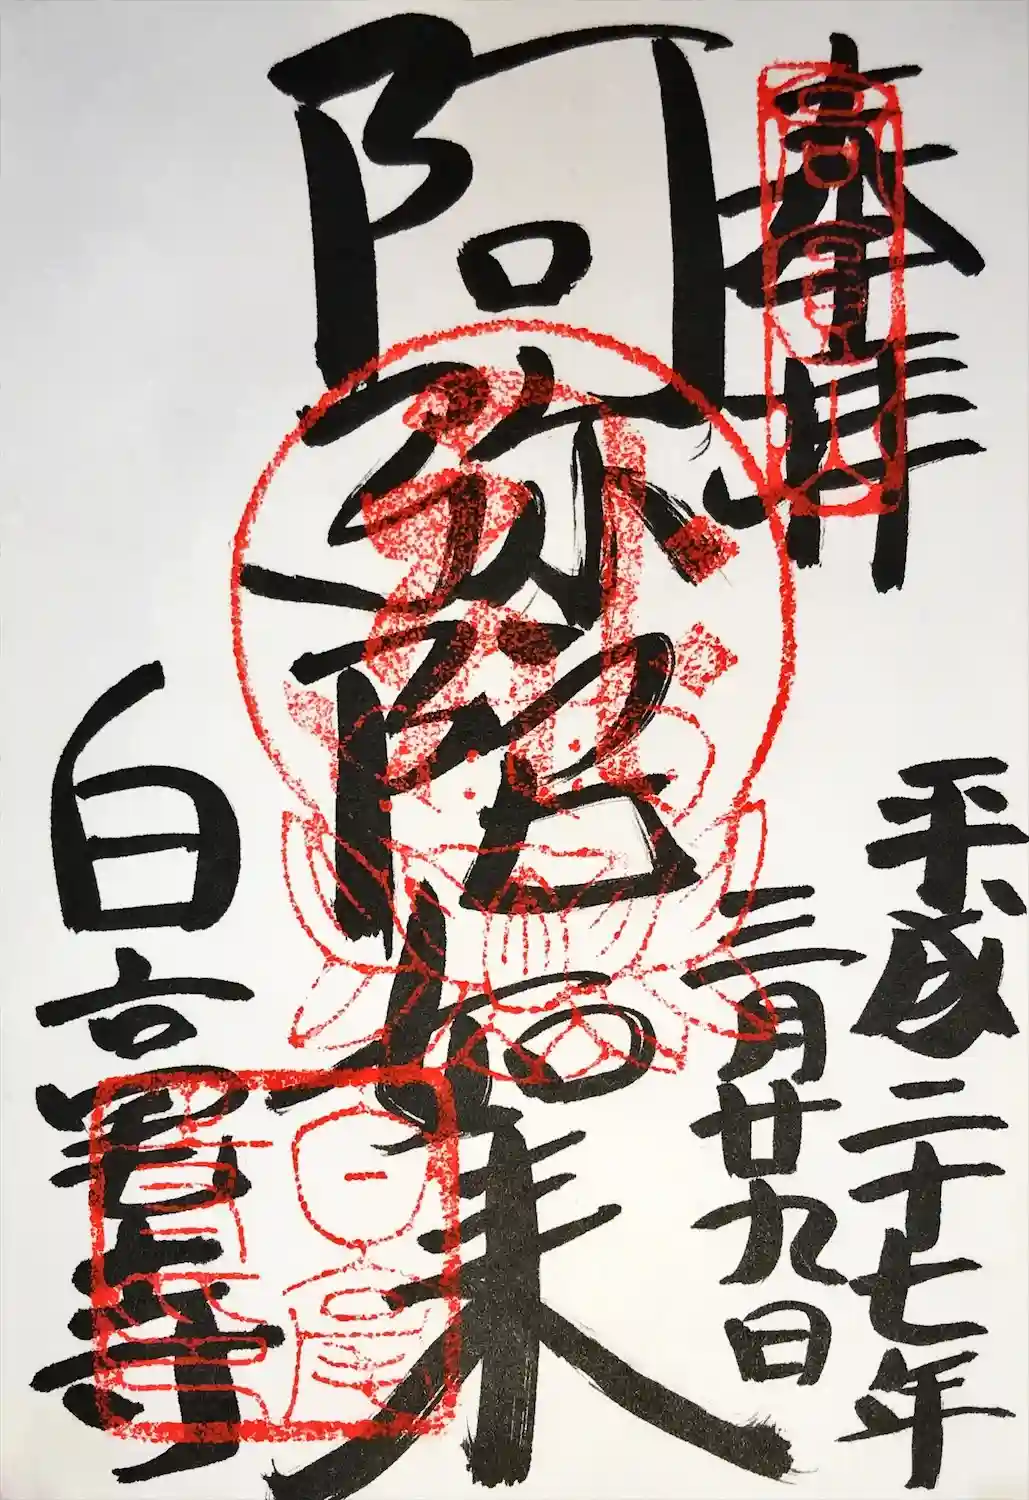 奉拝
高円山
平成二十七年
三月廿九日
阿弥陀如来
白毫寺